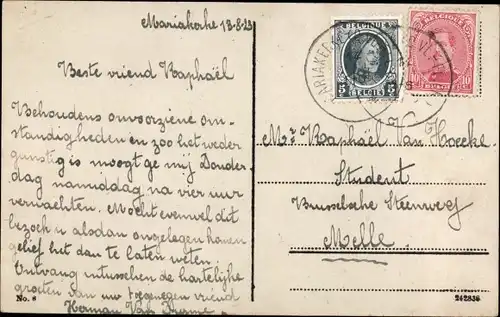 Mariakerke 13-8-23
Beste vriend Raphaël
Behoudens onvoorziene om-
standigheden en zoo het weder
gunstig is moogt ge mij Donder-
dag namiddag na vier uur
verwachten. Mocht evenwel dit
bezoek u alsdan ongelegen komen
gelief het dan te laten weten.
Ontvang intusschen de hartelijke
groeten van uw toegenegen vriend
Herman Van
No. 8
BELGIE
5 5
BELGIQUE
10 10
Mr Raphaël Van Hoecke
Student
Brusselsche Steenweg
Melle
242838